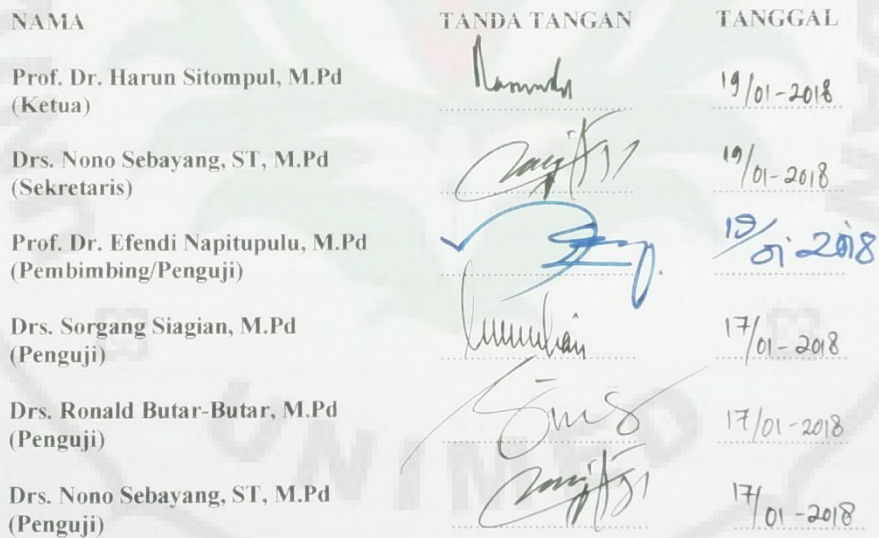 NAMA TANDA TANGAN TANGGAL
Prof. Dr. Harun Sitompul, M.Pd
(Ketua) 19/01-2018
Drs. Nono Sebayang, ST, M.Pd
(Sekretaris) 19/01-2018
Prof. Dr. Efendi Napitupulu, M.Pd
(Pembimbing/Penguji) 19/01-2018
Drs. Sorgang Siagian, M.Pd
(Penguji) 17/01-2018
Drs. Ronald Butar-Butar, M.Pd
(Penguji) 17/01-2018
Drs. Nono Sebayang, ST, M.Pd
(Penguji) 17/01-2018
UNIMED